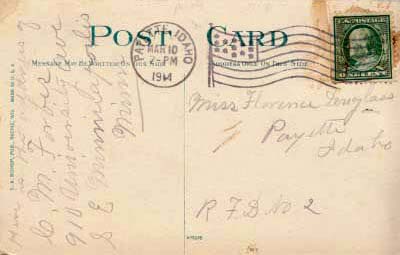 POST CARD
MESSAGE MAY BE WRITTEN ON THIS SIDE
ADDRESS ONLY ON THIS SIDE
PAYETTE, IDAHO
MAR 10
2-PM
1914
Here is the address of
C. M. Forbes
910 University Ave
S E Minneapolis
Minn
Miss Florence Douglass
Payette
Idaho
R F D No 2